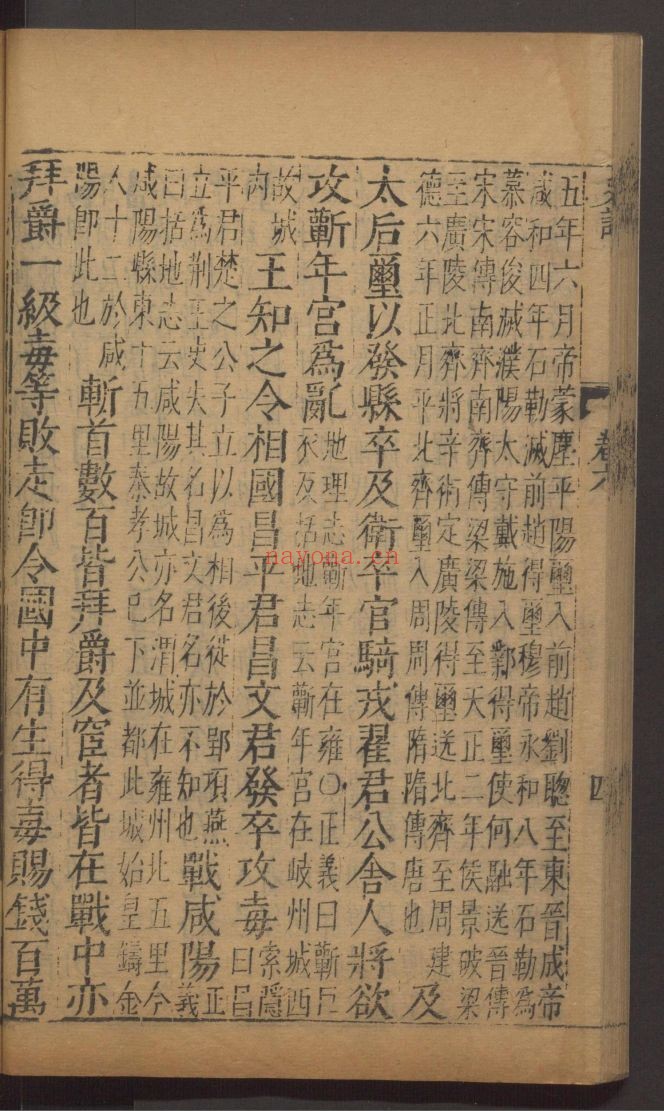 史記 卷六 四
五年六月帝蒙塵平陽璽入前趙劉聰至東晉成帝
咸和四年石勒滅前趙得璽穆帝永和八年石勒爲
慕容俊滅濮陽太守戴施入鄴得璽使何融送晉傳
宋宋傳南齊南齊傳梁梁傳至天正二年侯景破梁
至廣陵北齊將辛術定廣陵得璽送北齊至周建
德六年正月平北齊璽入周周傳隋隋傳唐也
及
太后璽以發縣卒及衛卒官騎戎翟君公舍人將欲
攻蘄年宮爲亂
地理志蘄年宮在雍○正義曰蘄巨
衣反括地志云蘄年宮在岐州城西
故城
內
王知之令相國昌平君昌文君發卒攻毐
索隱
曰昌
平君楚之公子立以爲相後徙於郢項燕
立爲荆王史失其名昌文君名亦不知也
戰咸陽
正
義
曰括地志云咸陽故城亦名渭城在雍州北五里今
咸陽縣東十五里秦孝公已下並都此城始皇鑄金
人十二於咸
陽卽此也
斬首數百皆拜爵及宦者皆在戰中亦
拜爵一級毐等敗走卽令國中有生得毐賜錢百萬
nayona.cn